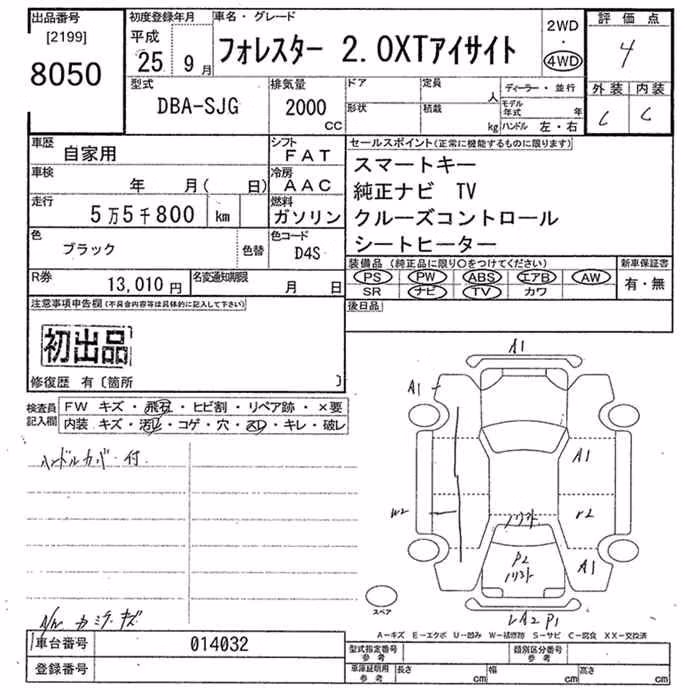 出品番号
[2199]
8050
初度登録年月
平成
25 9月
車名・グレード
フォレスター 2.0XTアイサイト
2WD
・
4WD
評価点
4
外装 内装
C C
型式
DBA-SJG
排気量
2000
CC
ドア
定員
人
形状
積載
kg
ディーラー・並行
モデル年式 年
ハンドル 左・右
車歴
自家用
シフト
FAT
車検
年 月( 日)
冷房
AAC
走行
5万5千800 km
燃料
ガソリン
色
ブラック
色替
色コード
D4S
R券
13,010円
名変通知期限
月 日
セールスポイント(正常に機能するものに限ります)
スマートキー
純正ナビ TV
クルーズコントロール
シートヒーター
装備品(純正品に限り○をつけてください)
PS PW ABS エアB AW
SR ナビ TV カワ
新車保証書
有・無
後日品
注意事項申告欄(不具合内容等は具体的に記入して下さい)
初出品
修復歴 有〔箇所 〕
検査員記入欄
FW キズ・飛石・ヒビ割・リペア跡・×要
内装 キズ・汚レ・コゲ・穴・スレ・キレ・破レ
ハンドルカバー付
A1
A1
A1
W2
A1
P2
スペア
P1
A-キズ E-エクボ U-凹み W-補修跡 S-サビ C-腐食 XX-交換済
車台番号
014032
登録番号
型式指定番号
参考
類別区分番号
参考
車庫証明用
参考
長さ cm
幅 cm
高さ cm